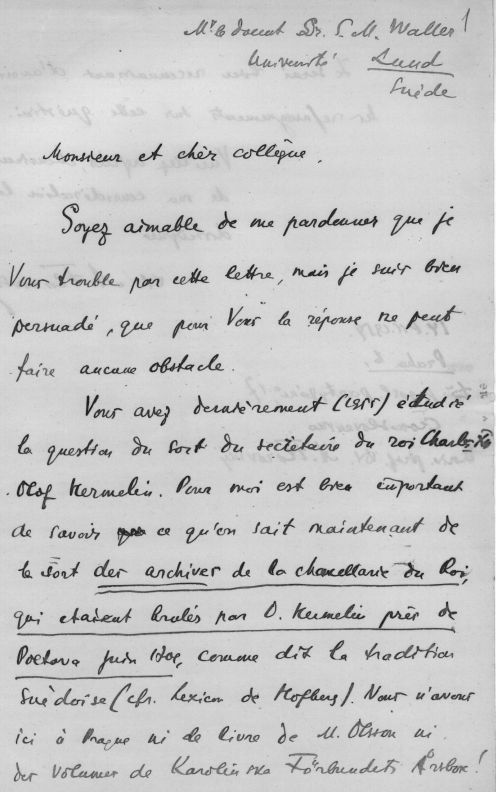 Mr le docent Dr. S. M. Waller
Université Lund
Suède
Monsieur et chèr collègue,
Soyez aimable de me pardonner que je
Vous trouble par cette lettre, mais je suis bien
persuadé, que pour Vous la réponse ne peut
faire aucune obstacle.
Vous avez dernièrement (1955) étudié
la question du sort du secrétaire du roi Charles XII
Olof Hermelin. Pour moi est bien important
de savoir ce qu'on sait maintenant de
le sort des archives de la chancellarie du Roi,
qui etaient brulés par O. Hermelin près de
Poltava juin 1709, comme dit la tradition
Suèdoise (cfr. Lexicon de Hofberg). Nous n'avons
ici à Prague ni de livre de M. Olsson ni
des volumes de Karolinska Förbundets Årsbok!